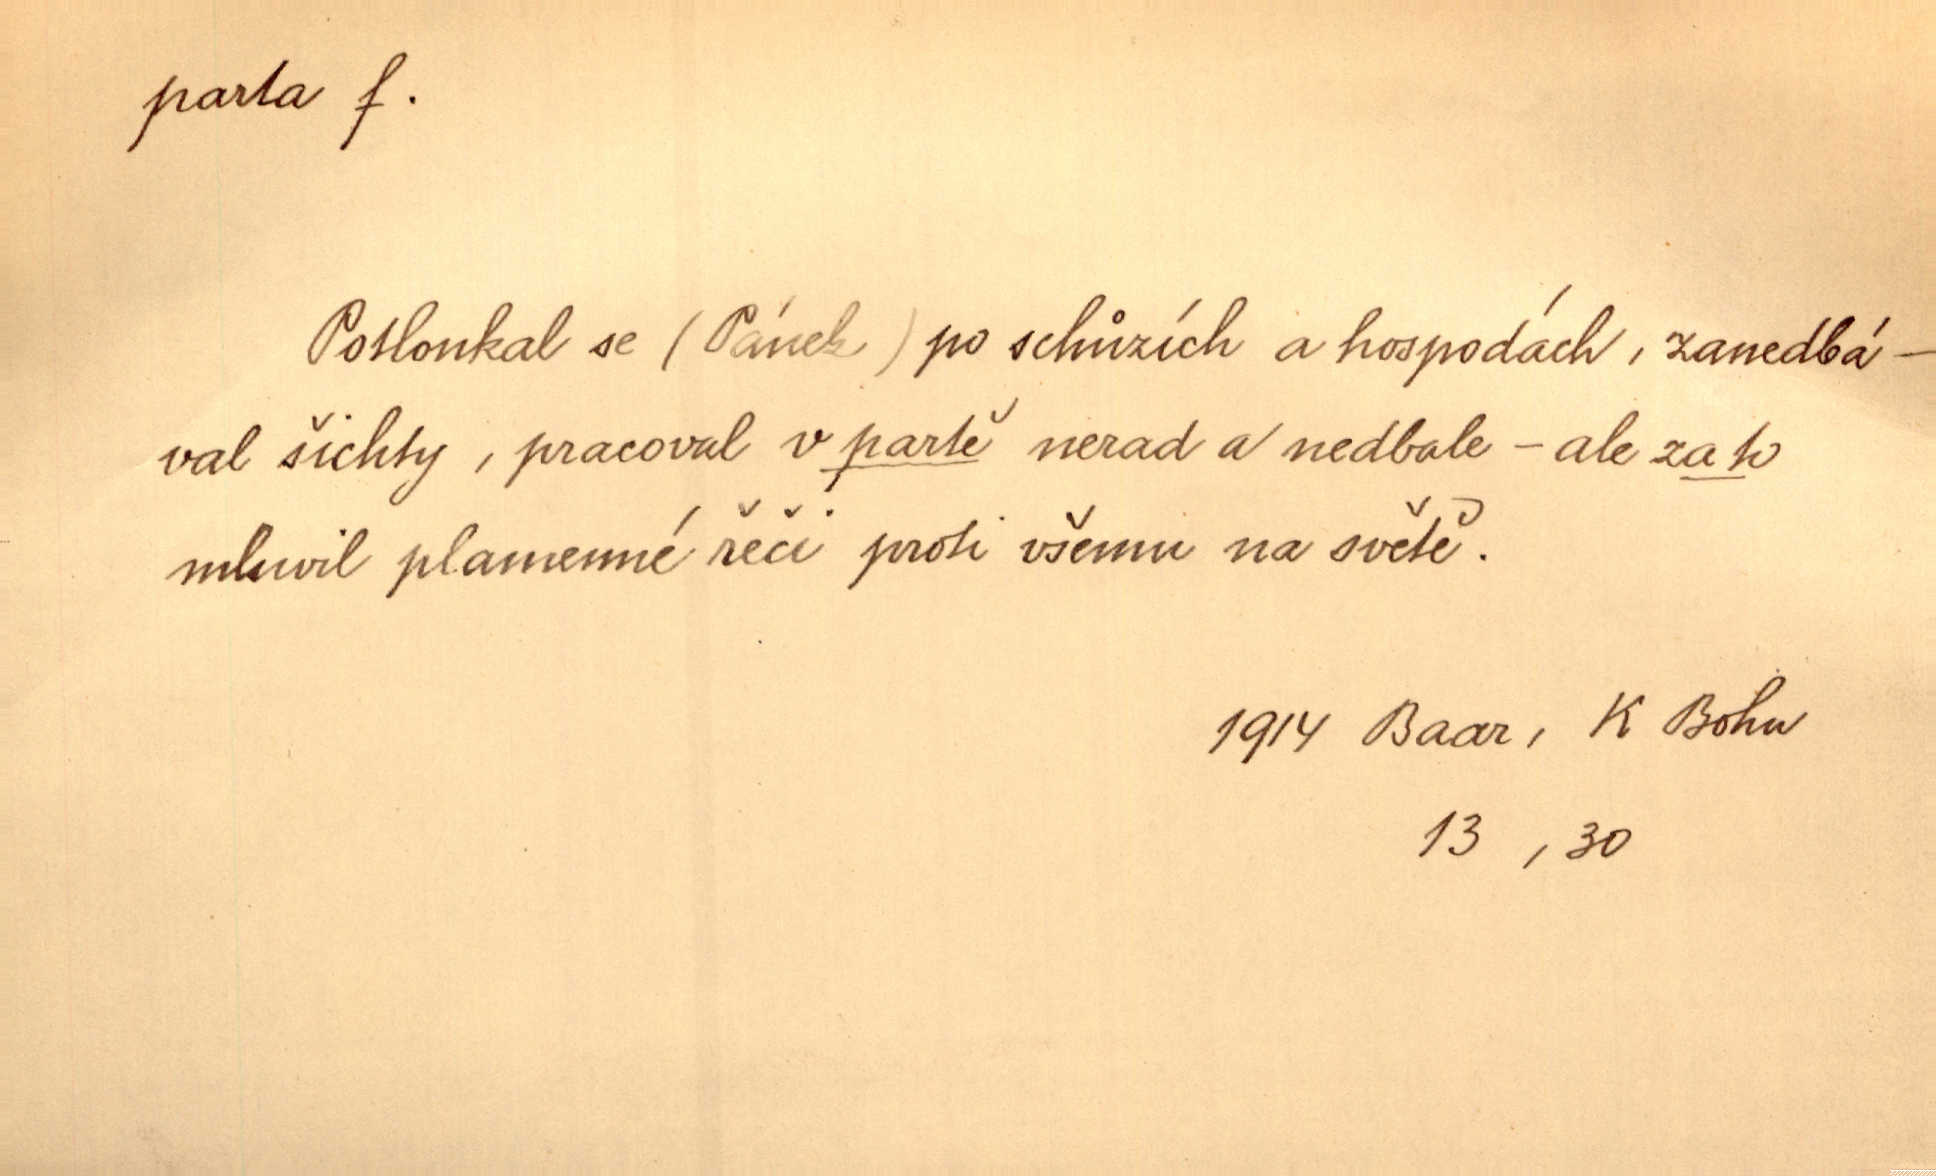 parta f.
Potloukal se (Pánek) po schůzích a hospodách, zanedbá-
val šichty, pracoval v partě nerad a nedbale - ale za to
mluvil plamenné řeči proti všemu na světě.
1914 Baar, K Bohu
13, 30